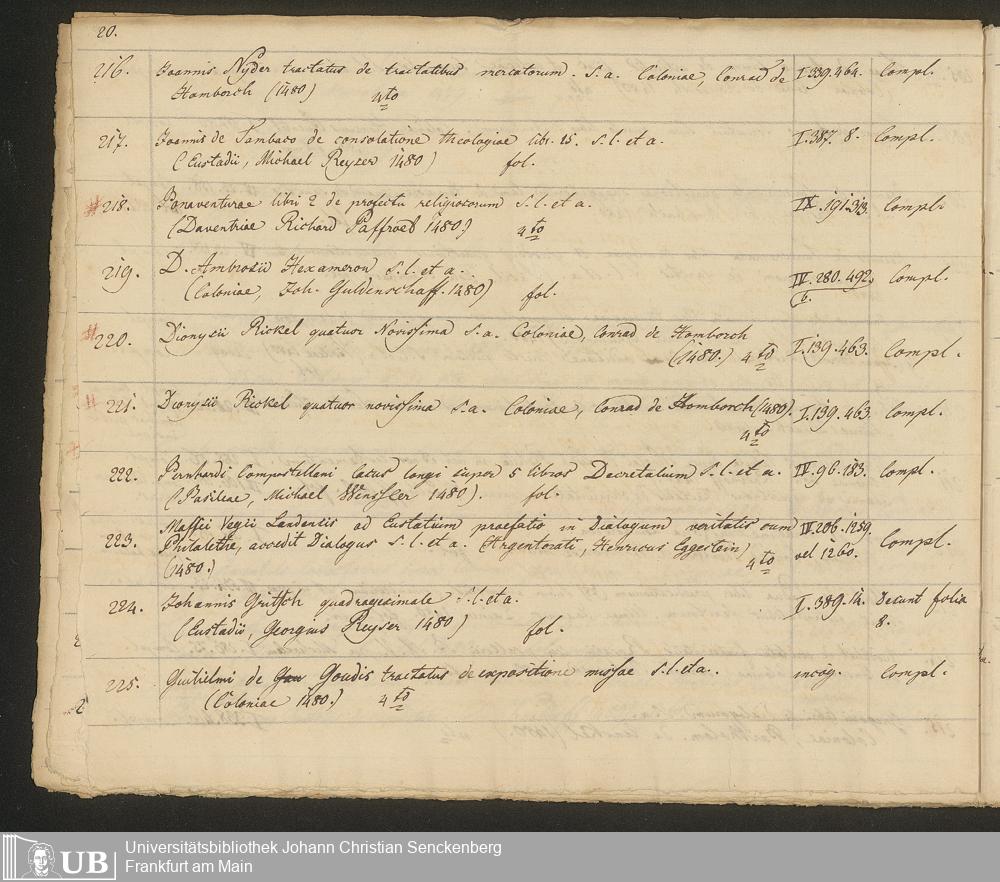 20.
216. Joannis Nyder tractatus de tractatibus mercatorum. S. a. Coloniae, Conrad de I. 339. 464. Compl.
Homborch (1480) 4to
217. Joannis de Tambaco de consolatione theologiae libr. 15. S. l. et a. I. 387. 8. Compl.
(Eustadii, Michael Reyser 1480) fol.
#218. Bonaventurae libri 2 de profectu religiosorum S. l. et a. IX. 191. 313. Compl.
(Daventriae Richard Paffroet 1480.) 4to
219. D. Ambrosii Hexameron S. l. et a. IV. 280. 492. Compl.
(Coloniae, Joh. Guldenschaff. 1480) fol. b.
#220. Dionysii Rickel quatuor Novissima S. a. Coloniae, Conrad de Homborch I. 139. 463. Compl.
(1480.) 4to
# 221. Dionysii Rickel quatuor novissima S. a. Coloniae, Conrad de Homborch (1480). I. 139. 463 Compl.
4to
222. Bernhardi Compostellani casus longi super 5 libros Decretalium S. l. et a. IV. 96. 183. Compl.
(Basileae, Michael Wenssler 1480). fol.
223. Maffei Vegii Laudensis ad Eustatium praefatio in Dialogum veritatis cum IV. 206. 1259. Compl.
Philalethe, accedit Dialogus S. l. et a. (Argentorati, Henricus Eggestein) 4to vel 1260.
(1480.)
224. Johannis Gritsch quadragesimale S. l. et a. I. 389. 14. Desunt folia
(Eustadii, Georgius Reyser 1480) fol. 8.
225. Guilielmi de Gau Goudis tractatus de expositione missae S. l. et a. incog. Compl.
(Coloniae 1480.) 4to
UB
Universitätsbibliothek Johann Christian Senckenberg
Frankfurt am Main